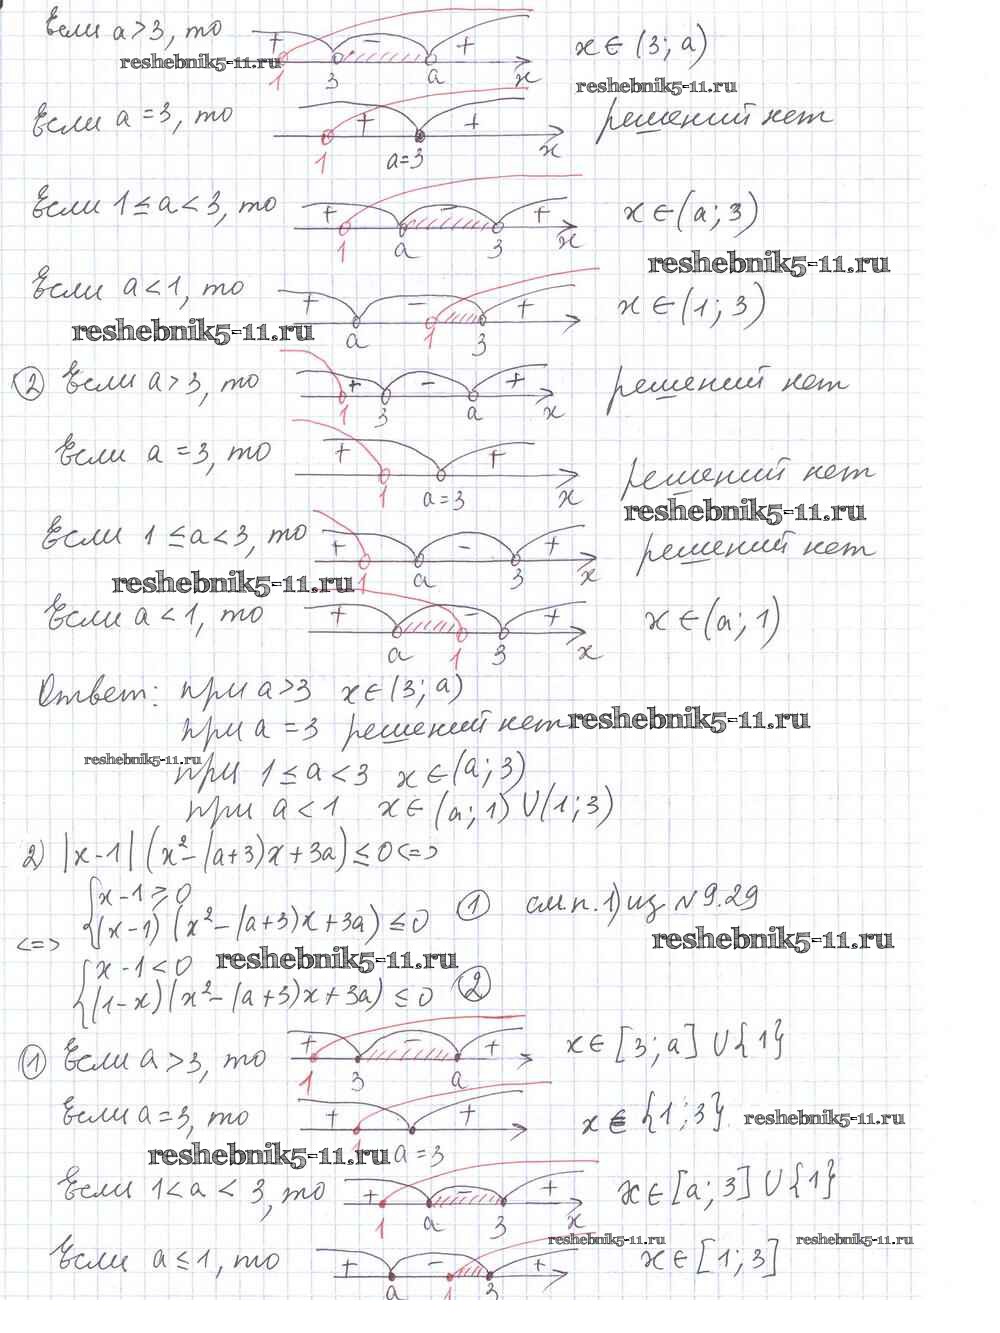 Если a>3, то + 1 3 - a + x x∈(3; a)
reshebnik5-11.ru reshebnik5-11.ru
Если a=3, то 1 + a=3 + x решений нет
Если 1≤a<3, то + 1 a - 3 + x x∈(a; 3)
reshebnik5-11.ru
Если a<1, то + a - 1 3 + x∈(1; 3)
reshebnik5-11.ru
② Если a>3, то 1 + 3 - a + x решений нет
Если a=3, то + 1 a=3 + x решений нет
reshebnik5-11.ru
Если 1≤a<3, то + 1 a - 3 + x решений нет
reshebnik5-11.ru
Если a<1, то + a 1 - 3 + x x∈(a; 1)
Ответ: при a>3 x∈(3; a)
при a=3 решений нет reshebnik5-11.ru
reshebnik5-11.ru
при 1≤a<3 x∈(a; 3)
при a<1 x∈(a; 1)∪(1; 3)
2) |x-1|(x²-(a+3)x+3a)≤0 <=>
{x-1≥0
<=> {(x-1)(x²-(a+3)x+3a)≤0 ① см п.1) из №9.29
reshebnik5-11.ru
{x-1<0 reshebnik5-11.ru
{(1-x)(x²-(a+3)x+3a)≤0 ②
① Если a>3, то + 1 3 - a + x∈[3; a]∪{1}
Если a=3, то + 1 a=3 + x∈{1; 3} reshebnik5-11.ru
reshebnik5-11.ru
Если 1<a<3, то + 1 a - 3 + x x∈[a; 3]∪{1}
reshebnik5-11.ru reshebnik5-11.ru
Если a≤1, то + a - 1 3 + x∈[1; 3]